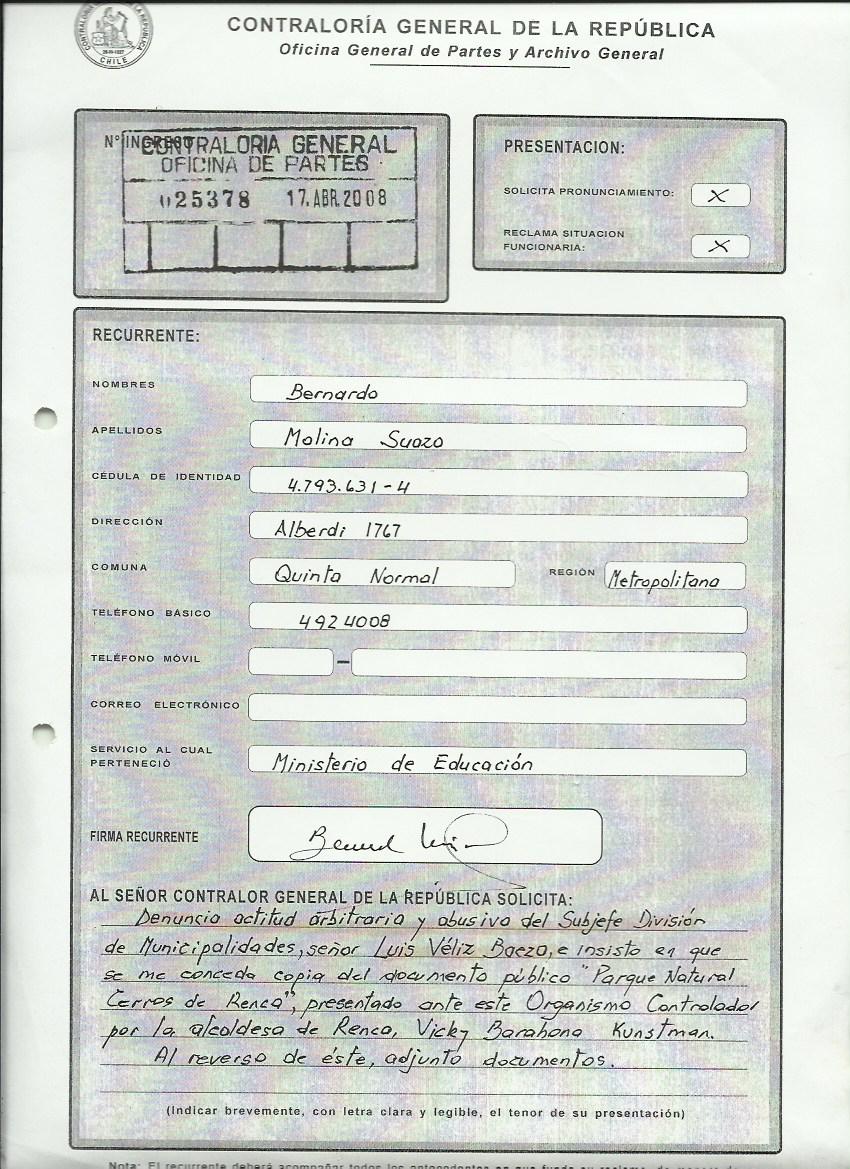 CONTRALORÍA GENERAL DE LA REPÚBLICA
Oficina General de Partes y Archivo General
CHILE
N° INGRESO
CONTRALORIA GENERAL
OFICINA DE PARTES
025378 17.ABR.2008
PRESENTACION:
SOLICITA PRONUNCIAMIENTO: X
RECLAMA SITUACION
FUNCIONARIA: X
RECURRENTE:
NOMBRES Bernardo
APELLIDOS Molina Suazo
CÉDULA DE IDENTIDAD 4.793.631-4
DIRECCIÓN Alberdi 1767
COMUNA Quinta Normal REGIÓN Metropolitana
TELÉFONO BÁSICO 4924008
TELÉFONO MÓVIL –
CORREO ELECTRÓNICO
SERVICIO AL CUAL
PERTENECIÓ Ministerio de Educación
FIRMA RECURRENTE
AL SEÑOR CONTRALOR GENERAL DE LA REPÚBLICA SOLICITA:
Denuncio actitud arbitraria y abusiva del Subjefe División
de Municipalidades, señor Luis Véliz Baeza, e insisto en que
se me conceda copia del documento público "Parque Natural
Cerros de Renca", presentado ante este Organismo Controlador
por la alcaldesa de Renca, Vicky Barahona Kunstman.
Al reverso de éste, adjunto documentos.
(Indicar brevemente, con letra clara y legible, el tenor de su presentación)